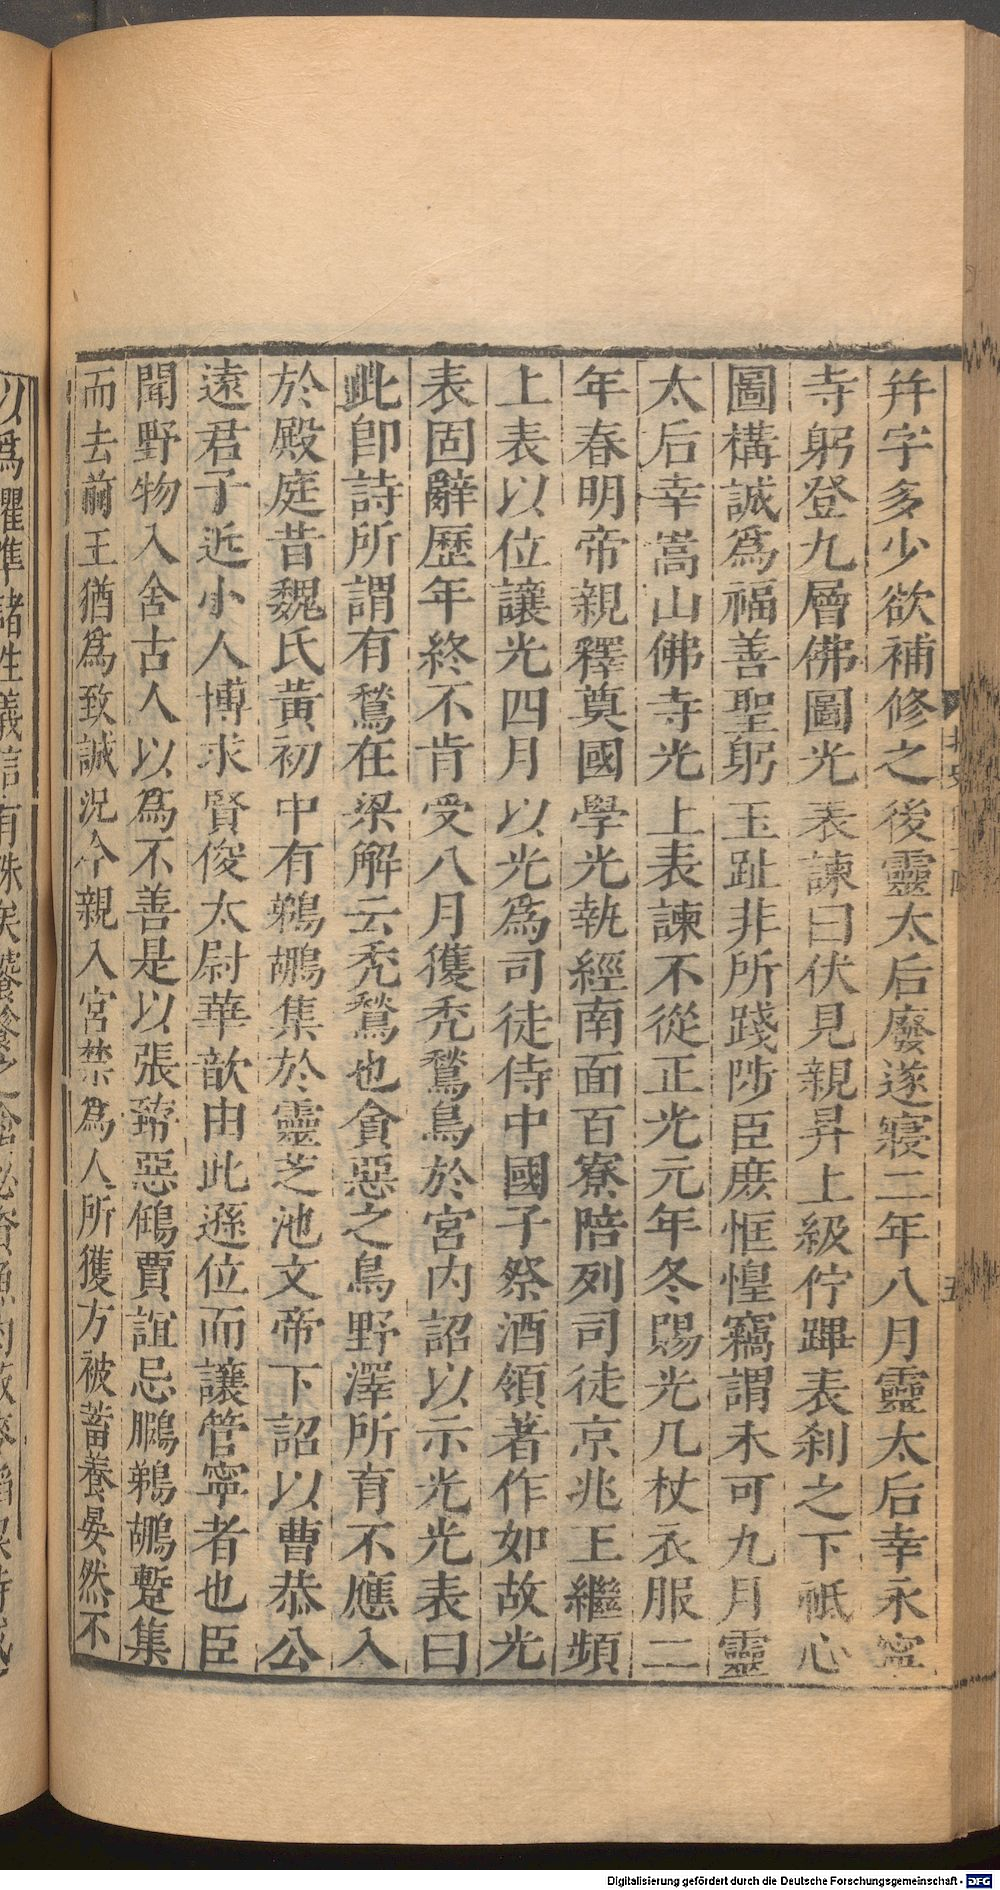 幷字多少欲補修之後靈太后廢遂寢二年八月靈太后幸永寧
寺躬登九層佛圖光表諫曰伏見親昇上級佇蹕表刹之下祗心
圖構誠爲福善聖躬玉趾非所踐陟臣庶恇惶竊謂未可九月靈
太后幸嵩山佛寺光上表諫不從正光元年冬賜光几杖衣服二
年春明帝親釋奠國學光執經南面百寮陪列司徒京兆王繼頻
上表以位讓光四月以光爲司徒侍中國子祭酒領著作如故光
表固辭歷年終不肯受八月獲禿鶖鳥於宮内詔以示光光表曰
此即詩所謂有鶖在梁解云禿鶖也貪惡之鳥野澤所育不應入
於殿庭昔魏氏黃初中有鵜鶘集於靈芝池文帝下詔以曹恭公
遠君子近小人博求賢俊太尉華歆由此遜位而讓管寧者也臣
聞野物入舍古人以爲不善是以張臶惡鵀賈誼忌鵩鵜鶘蹔集
而去前王猶爲致誡況今親入宮禁爲人所獲方被蓄養晏然不
以爲懼準諸往義信有殊矣饕餮之禽必資魚肉菽麥稻粱時或
北史
五
Digitalisierung gefördert durch die Deutsche Forschungsgemeinschaft - DFG